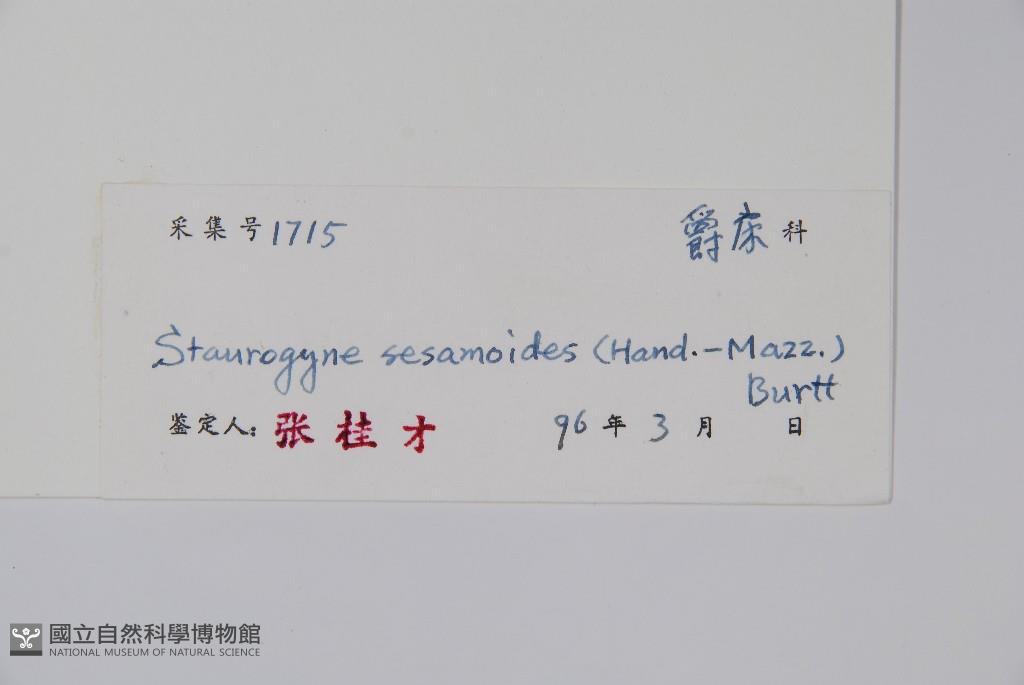 采集号 1715 爵床 科
Staurogyne sesamoides (Hand.-Mazz.)
Burtt
鉴定人: 张桂才 96 年 3 月 日
國立自然科學博物館
NATIONAL MUSEUM OF NATURAL SCIENCE